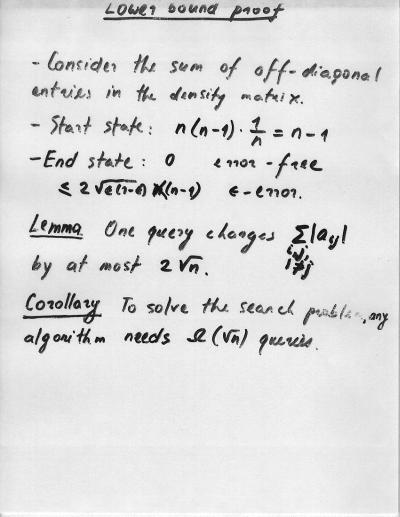 Lower bound proof
- Consider the sum of off-diagonal
entries in the density matrix.
- Start state: n(n-1) · 1/n = n-1
- End state: 0 error-free
≤ 2√ε(1-ε) (n-1) ε-error.
Lemma One query changes Σ|aij|
i,j,
i≠j
by at most 2√n.
Corollary To solve the search problem, any
algorithm needs Ω(√n) queries.